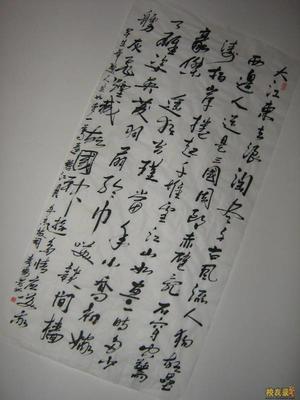 大江東去浪淘尽千古風流人物故壘
西邊人道是三國周郎赤壁乱石穿空驚
濤拍岸捲起千堆雪江山如畫一時多少
豪傑遥想公瑾當年小喬初嫁
了雄姿英發羽扇綸巾談笑間檣
艣灰飛煙滅故國神遊多情應笑我
早生華髮人生如夢一尊還酹江月
校友录